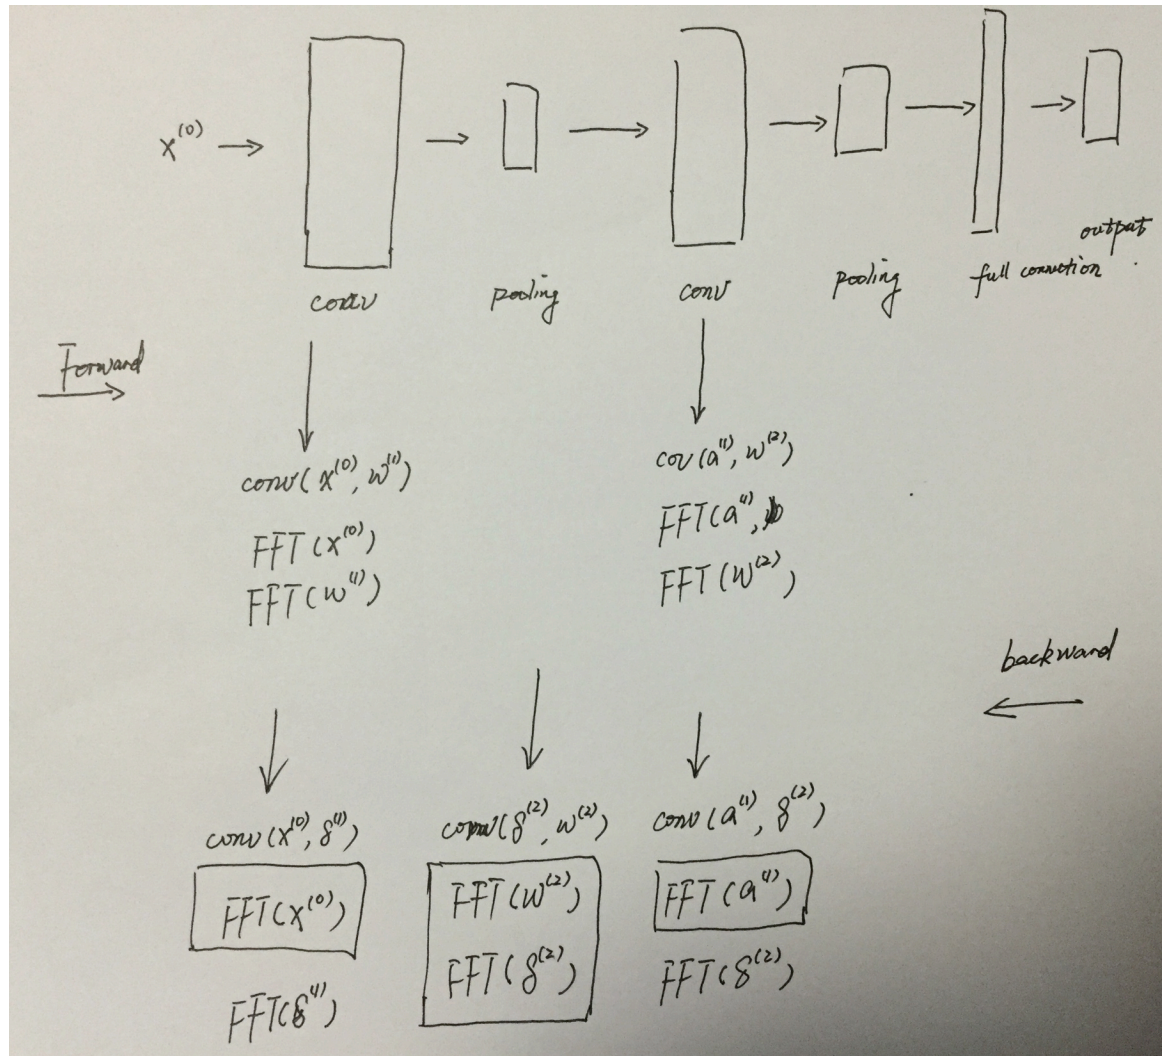 x^(0)
conv
pooling
conv
pooling
full connection
output
Forward
conv(x^(0), w^(1))
FFT(x^(0))
FFT(w^(1))
cov(a^(1), w^(2))
FFT(a^(1),
FFT(w^(2))
backward
conv(x^(0), δ^(1))
FFT(x^(0))
FFT(δ^(1))
conv(δ^(2), w^(2))
FFT(w^(2))
FFT(δ^(2))
conv(a^(1), δ^(2))
FFT(a^(1))
FFT(δ^(2))